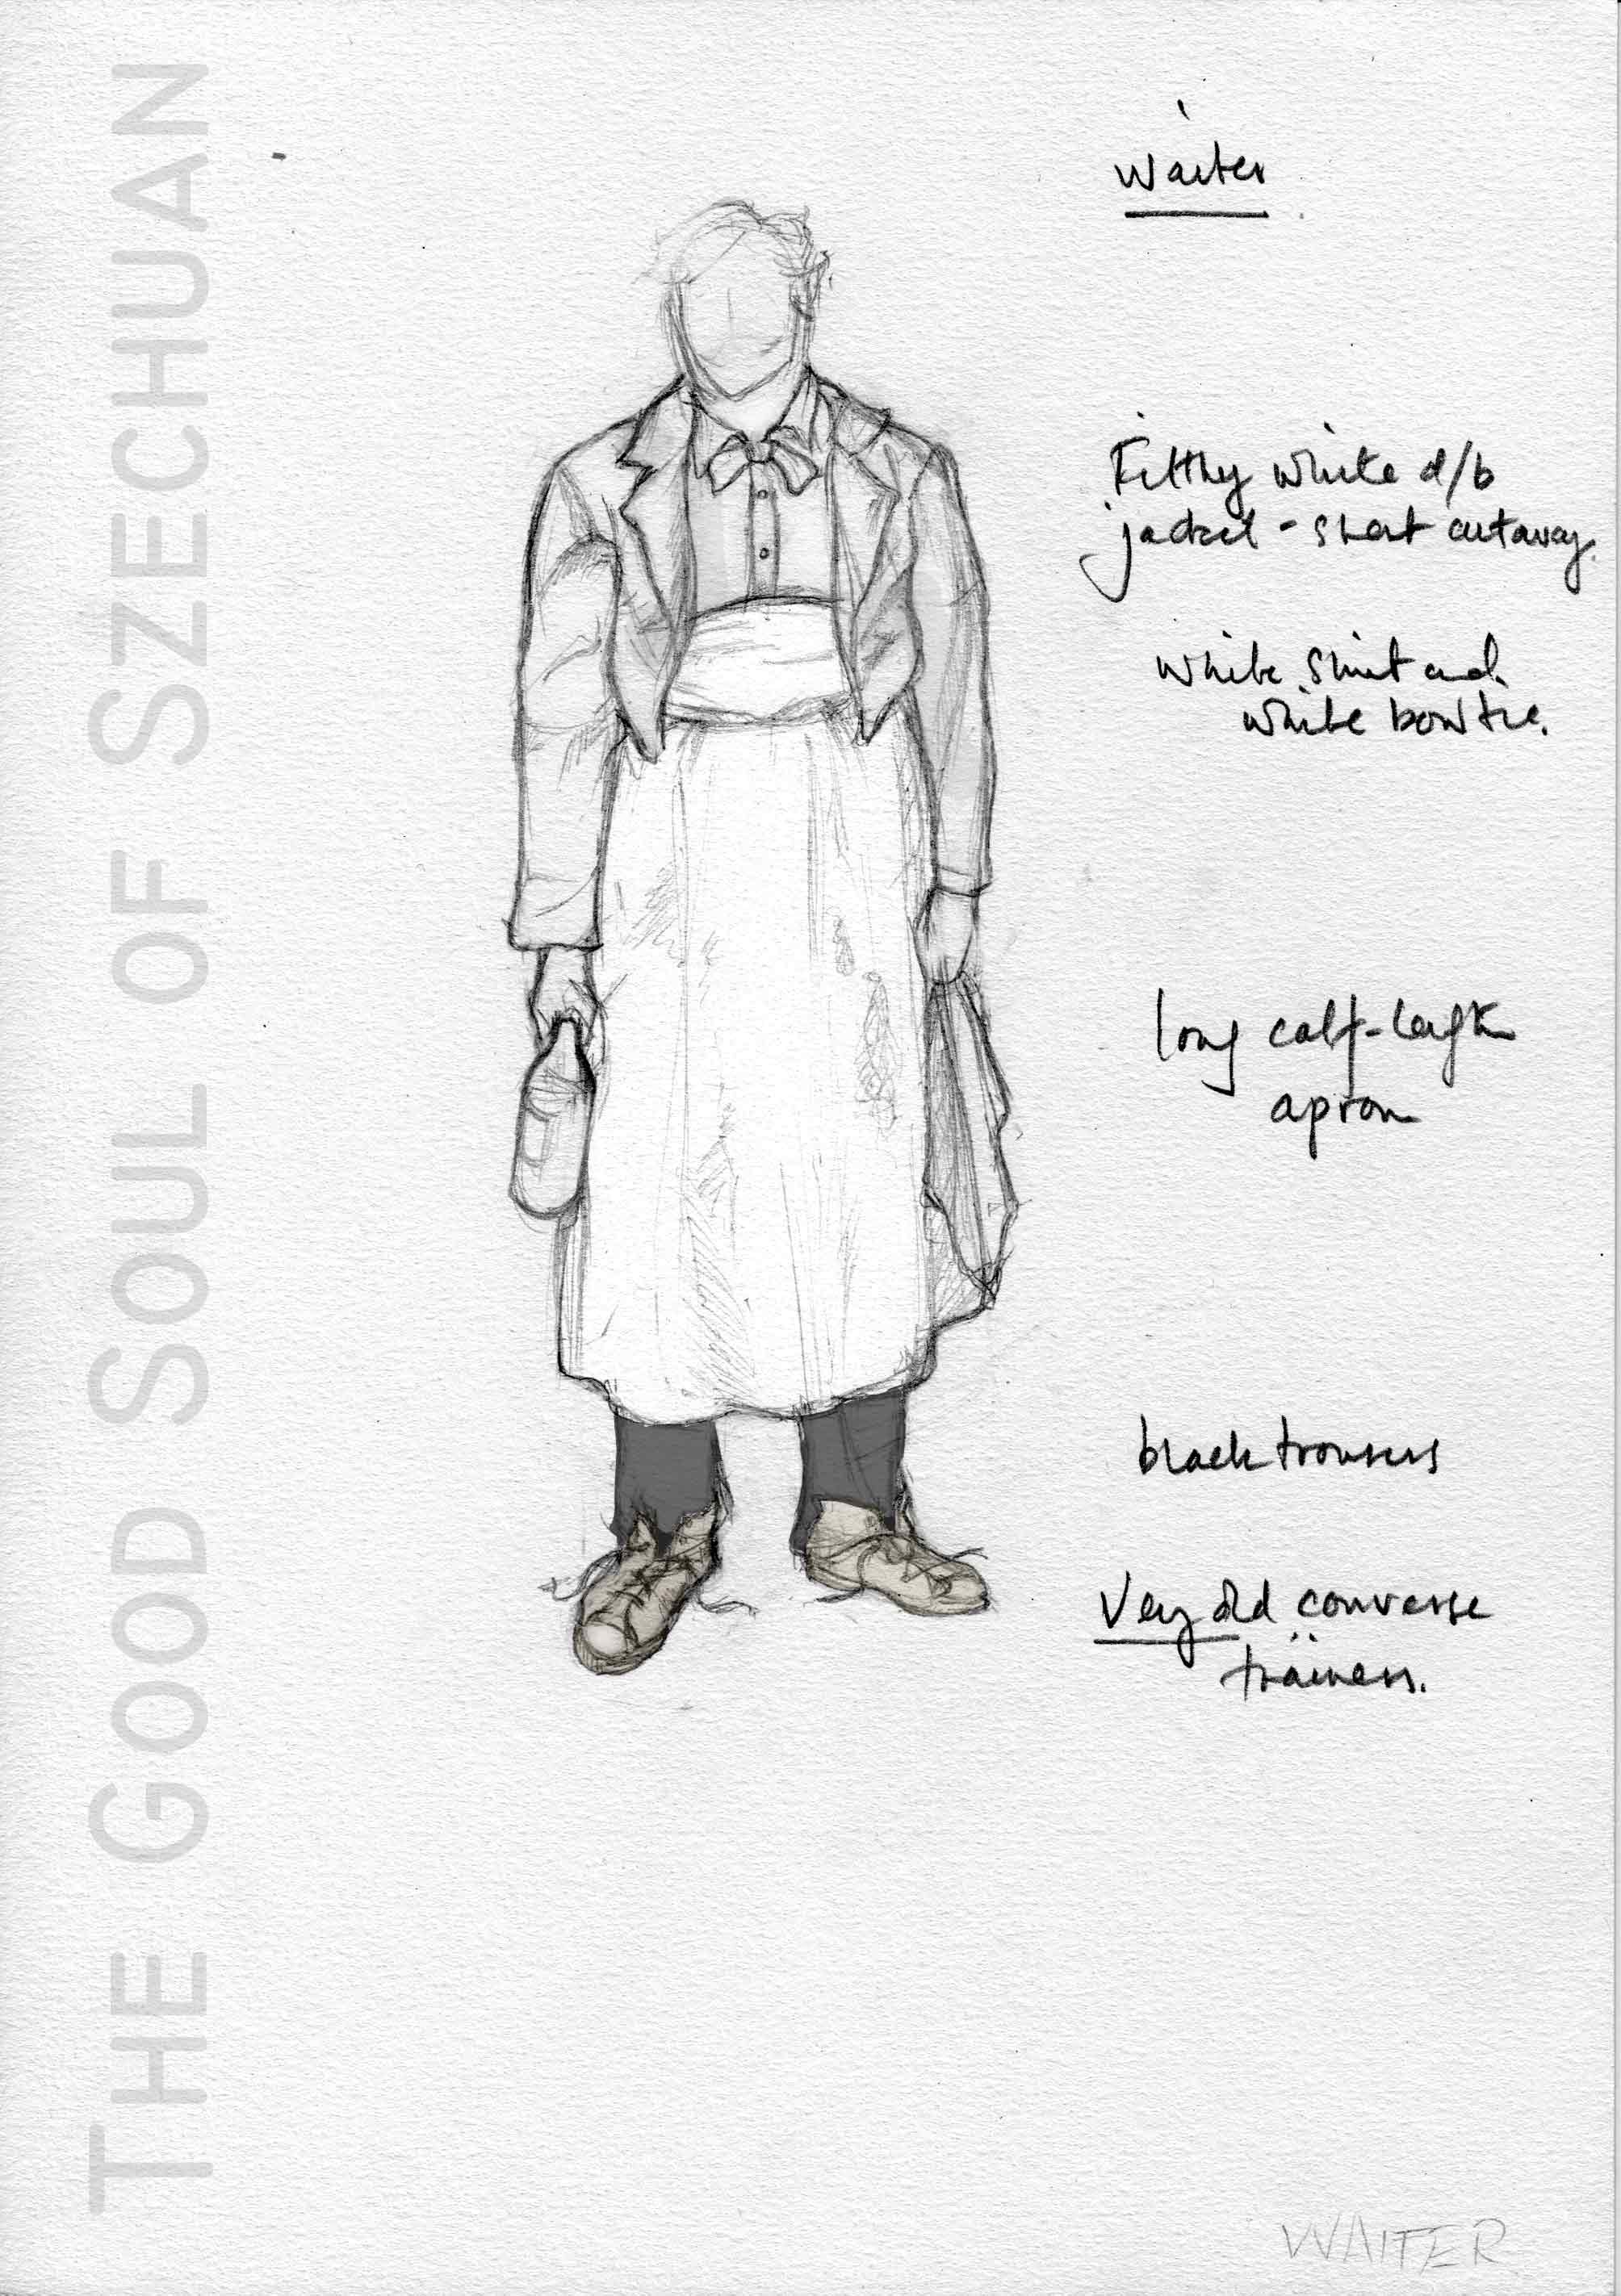 THE GOOD SOUL OF SZECHUAN
Waiter
Filthy white d/b
jacket - short cutaway.
white shirt and
white bowtie.
long calf-length
apron
black trousers
Very old converse
trainers.
WAITER